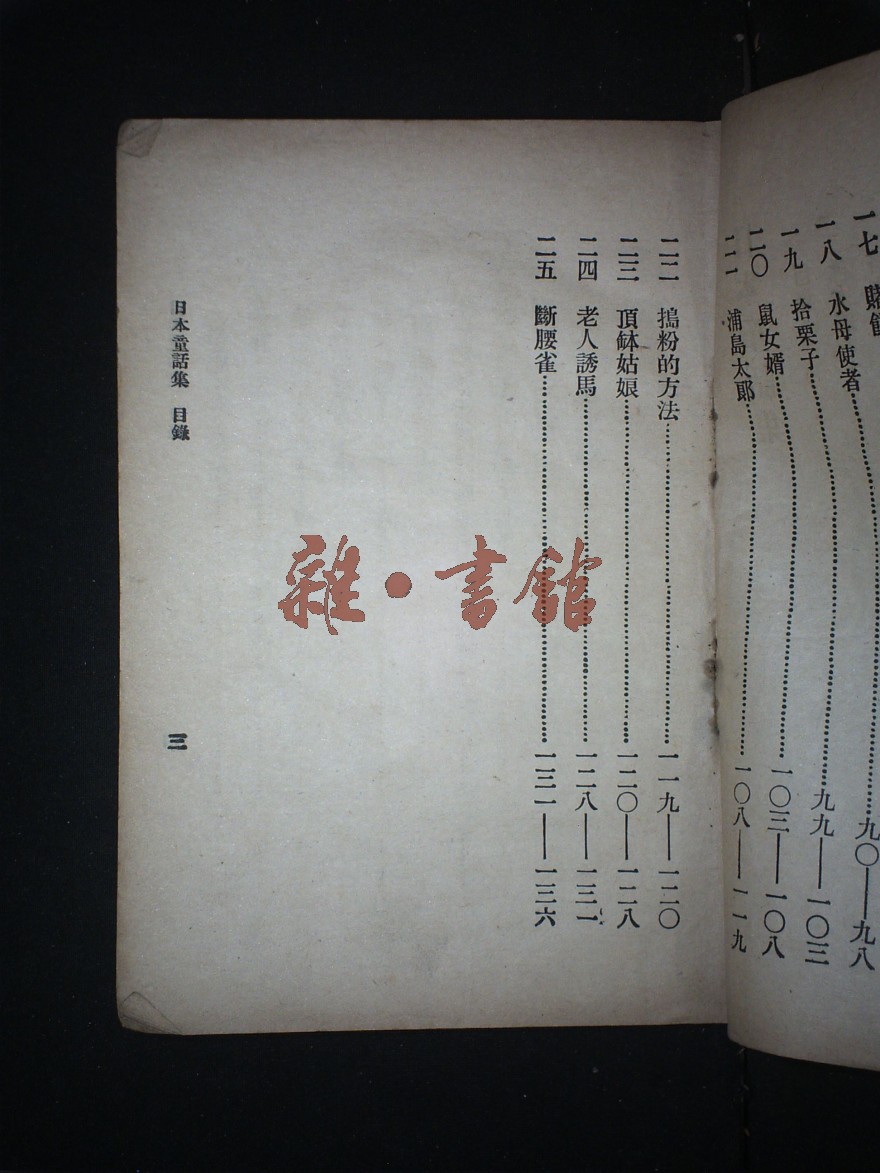 一七 賭
一八 水母使者 九〇——九八
一九 拾栗子 九九——一〇三
二〇 鼠女婿 一〇三——一〇八
二一 浦島太郎 一〇八——一一九
二二 搗粉的方法 一一九——一二〇
二三 頂缽姑娘 一二〇——一二八
二四 老人誘馬 一二八——一三一
二五 斷腰雀 一三一——一三六
日本童話集 目錄
三
雜·書館